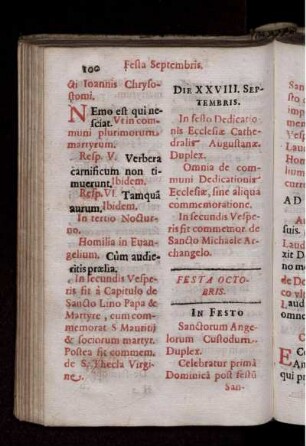 100
Festa Septembris.
cti Ioannis Chryso-
stomi.
NEmo est qui ne-
sciat. Ut in com-
muni plurimorum
martyrum.
Resp. V. Verbera
carnificum non ti-
muerunt. Ibidem.
Resp. VI. Tamquã
aurum. Ibidem.
In tertio Noctur-
no.
Homilia in Evan-
gelium. Cùm audie-
ritis prælia.
In secundis Vespe-
ris fit à Capitulo de
Sancto Lino Papa &
Martyre, cum com-
memorat S Mauritij
& sociorum martyr.
Postea fit commem.
de S. Thecla Virgi-
ne.
DIE XXVIII. SEP-
TEMBRIS.
In festo Dedicatio-
nis Ecclesiæ Cathe-
dralis Augustanæ.
Duplex.
Omnia de com-
muni Dedicationis
Ecclesiæ, sine aliqua
commemoratione.
In secundis Vespe-
ris fit commemor. de
Sancto Michaele Ar-
changelo.
FESTA OCTO-
BRIS.
IN FESTO
Sanctorum Ange-
lorum Custodum.
Duplex.
Celebratur primâ
Dominicâ post festũ
San-